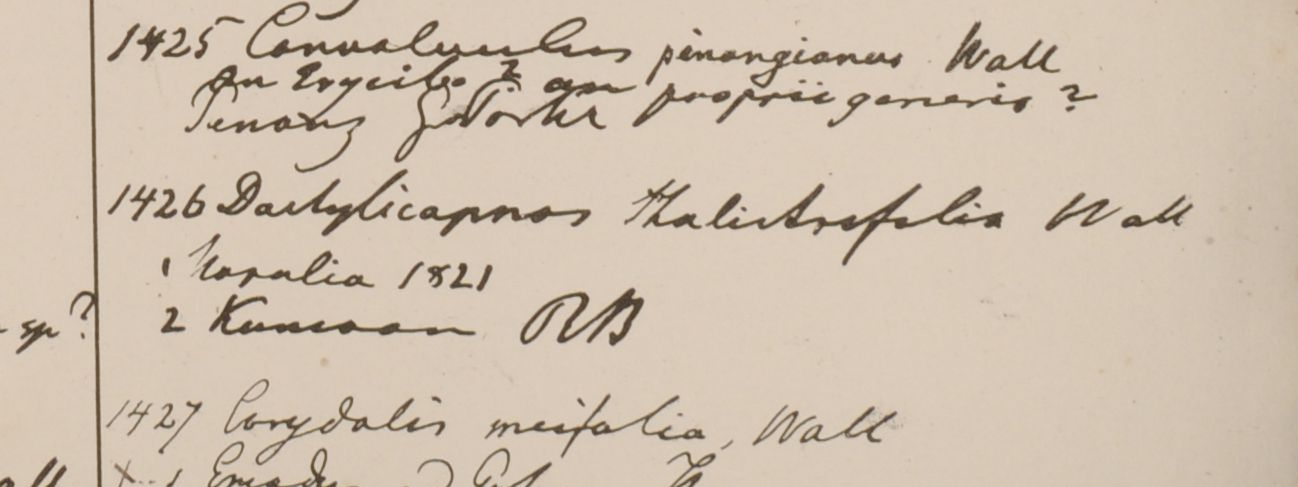 1425 Convolvulus pinangianus Wall
An Erycibe? an proprii generis?
Penang G. Porter
1426 Dactylicapnos thalictrifolia Wall
1 Napalia 1821
sp? 2 Kumaon RB
1427 Corydalis meifolia, Wall